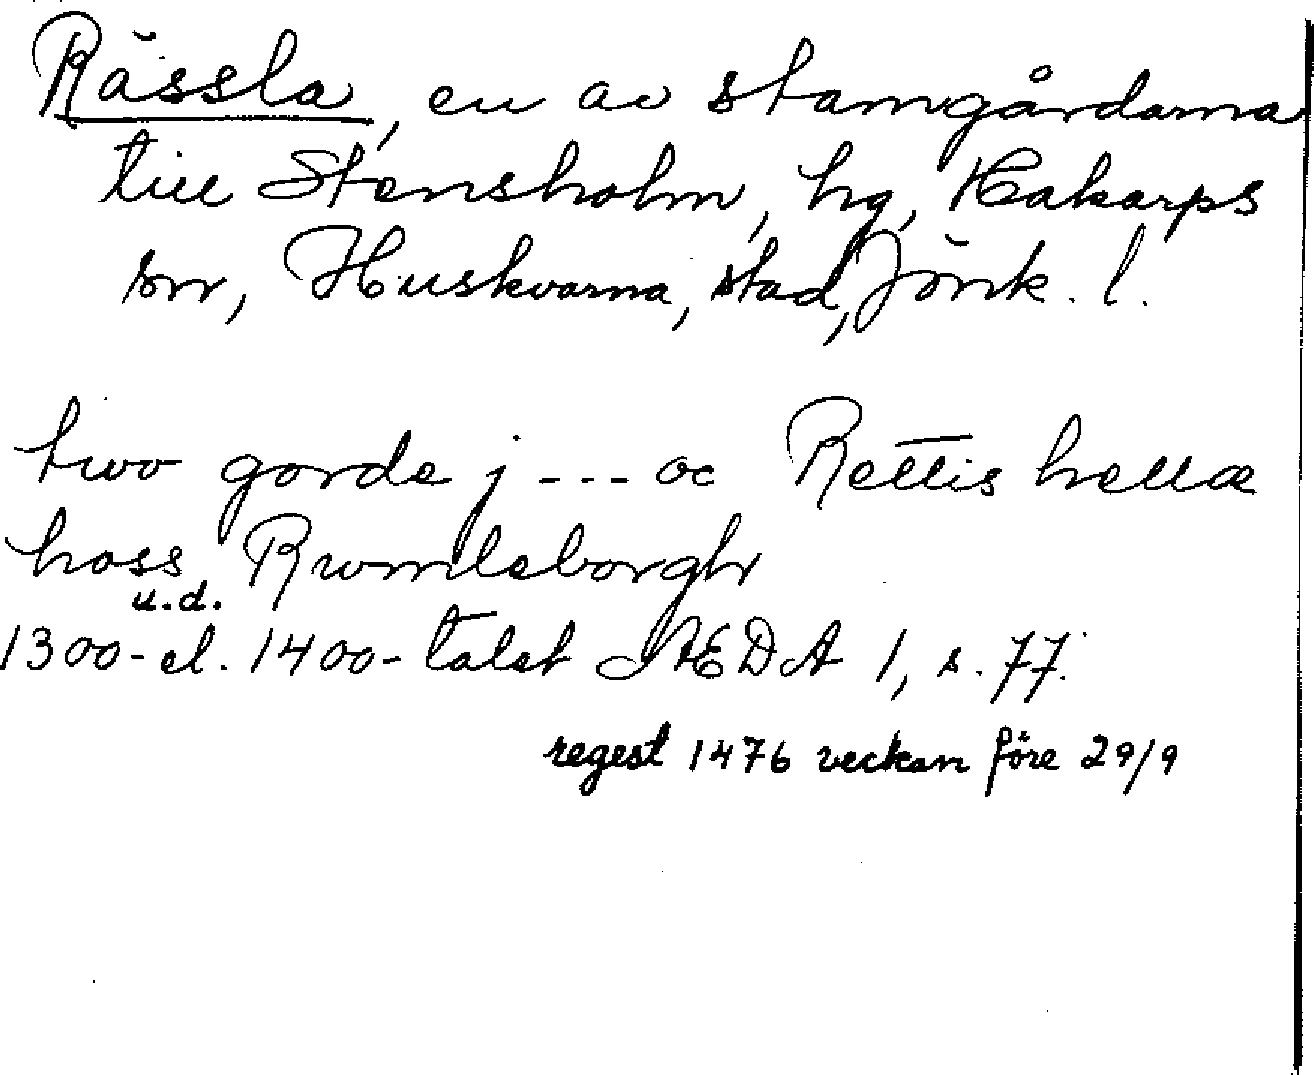 Rässla, en av stamgårdarna
till Stensholm, hg, Hakarps
sn, Huskvarna, stad, Jönk. l.
two gorda j --- oc Rettis hellæ
hoss Rwmlaborgh
u.d.
1300- el. 1400-talet ÆDA 1, s. 77.
regest 1476 veckan före 29/9